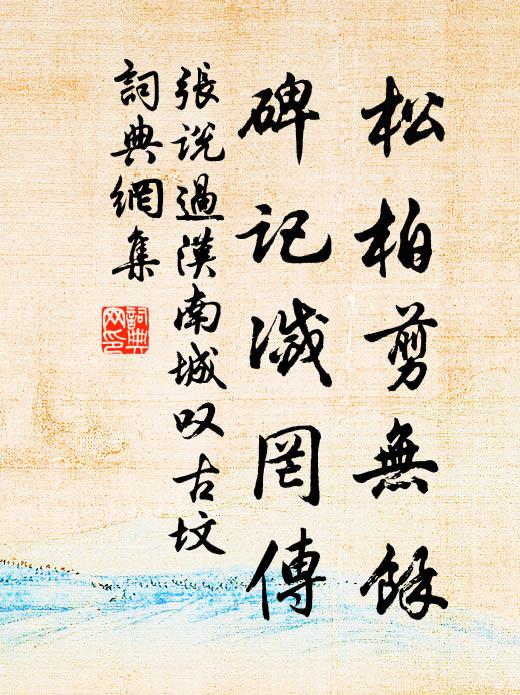 松柏剪無餘
碑記滅罔傳
張說過漢南城叹古坟
詞典網集
詞典
网印